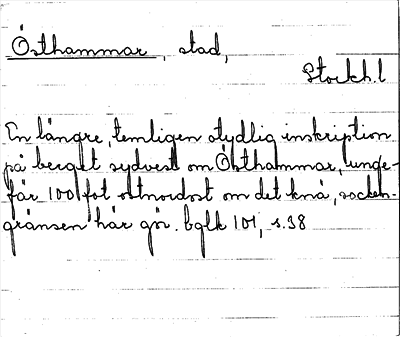 Östhammar, stad,
Stockh.l
En längre, temligen otydlig inskription
på berget sydvest om Östhammar, unge-
fär 100 fot ostnordost om det knä, socken-
gränsen här gör. bglk 101, s.38